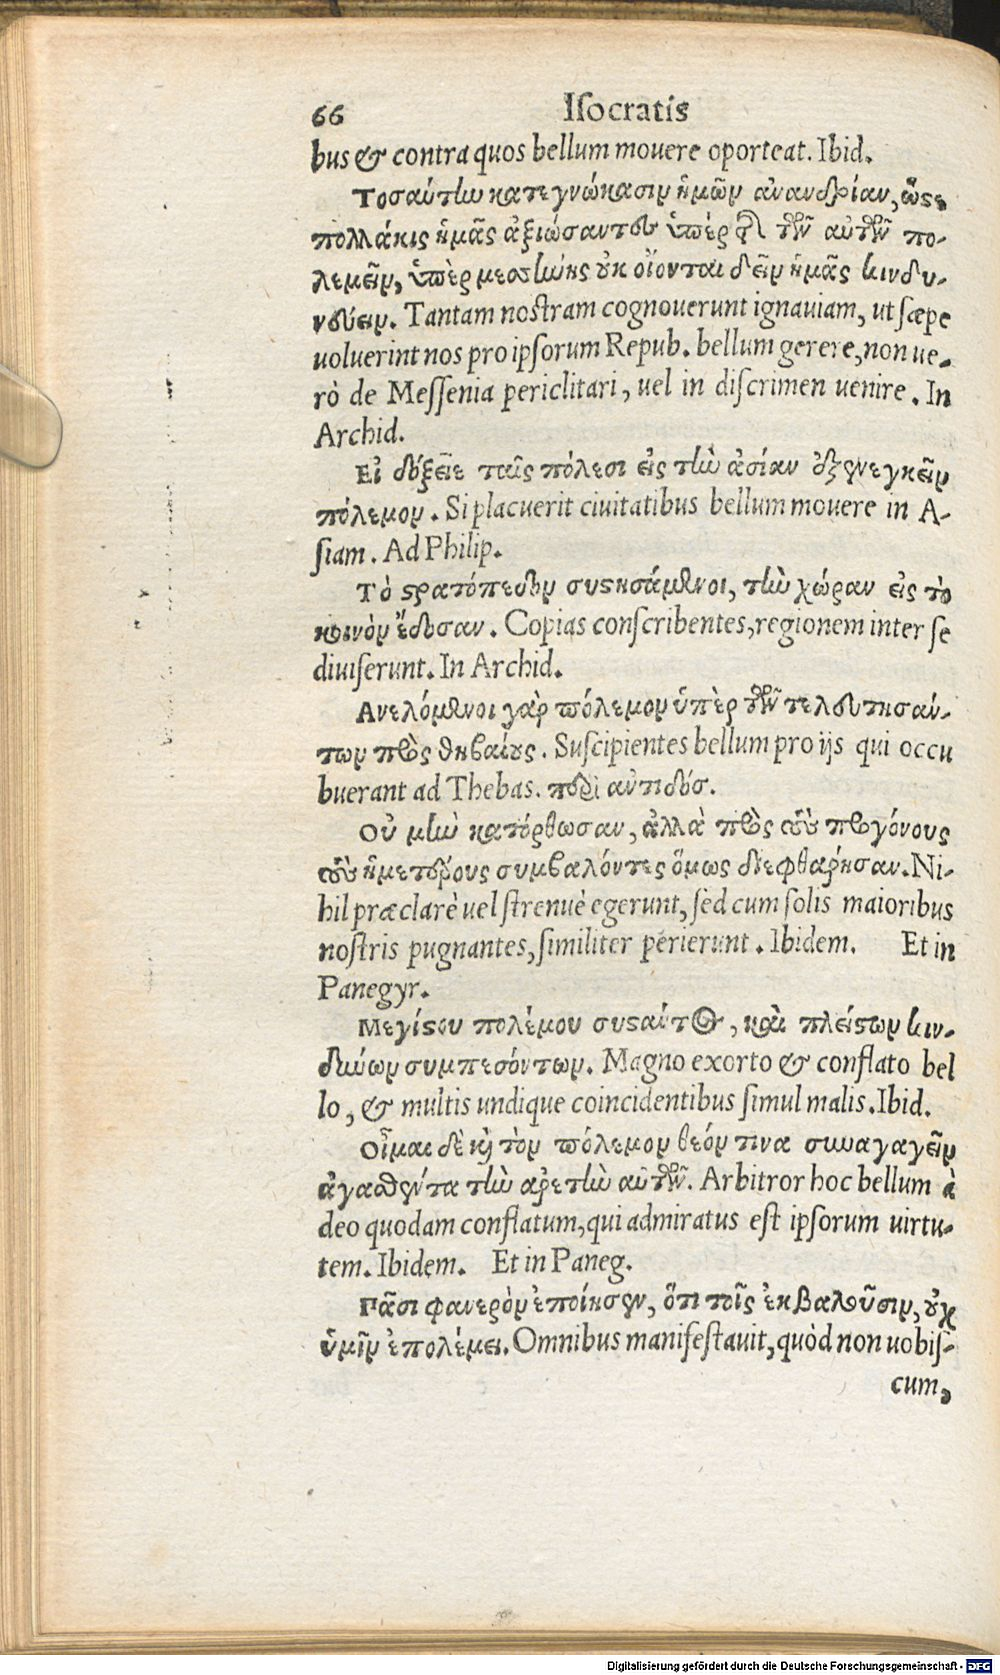 66 Iſocratis
bus & contra quos bellum mouere oporteat. Ibid.
Τοσαύτην κατεγνώκασιν ἡμῶν ἀνανδρίαν, ὥστε
πολλάκις ἡμᾶς ἀξιώσαντες ὑπὲρ τῆς τῶν αὐτῶν πο-
λεμεῖν, ὑπὲρ μεσσήνης οὐκ οἴονται δεῖν ἡμᾶς κινδυ-
νεύειν. Tantam noſtram cognouerunt ignauiam, ut ſæpe
uoluerint nos pro ipſorum Repub. bellum gerere, non ue-
rò de Meſſenia periclitari, uel in diſcrimen uenire. In
Archid.
Εἰ δόξειε ταῖς πόλεσι εἰς τὴν ἀσίαν ἐξενεγκεῖν
πόλεμον. Si placuerit ciuitatibus bellum mouere in A-
ſiam. Ad Philip.
Τὸ στρατόπεδον συστησάμενοι, τὴν χώραν εἰς τὸ
κοινὸν ἔδοσαν. Copias conſcribentes, regionem inter ſe
diuiſerunt. In Archid.
Ανελόμενοι γὰρ πόλεμον ὑπὲρ τῶν τελευτησάν-
των πρὸς θηβαίους. Suſcipientes bellum pro ijs qui occu
buerant ad Thebas. περὶ αὐτιδόσ.
Οὐ μὴν κατόρθωσαν, ἀλλὰ πρὸς τοὺς προγόνους
τοὺς ἡμετέρους συμβαλόντες ὅμως διεφθαρήσαν. Ni-
hil præclarè uel ſtrenuè egerunt, ſed cum ſolis maioribus
noſtris pugnantes, ſimiliter perierunt. Ibidem. Et in
Panegyr.
Μεγίστου πολέμου συστάντος, καὶ πλείστων κιν-
δύνων συμπεσόντων. Magno exorto & conflato bel
lo, & multis undique coincidentibus ſimul malis. Ibid.
Οἶμαι δὲ καὶ τὸν πόλεμον θεόν τινα συναγαγεῖν
ἀγασθέντα τὴν ἀρετὴν αὐτῶν. Arbitror hoc bellum à
deo quodam conflatum, qui admiratus eſt ipſorum uirtu-
tem. Ibidem. Et in Paneg.
Πᾶσι φανερὸν ἐποίησεν, ὅτι τοῖς ἐκβαλοῦσιν, οὐχ
ὑμῖν ἐπολέμει. Omnibus manifeſtauit, quòd non uobiſ-
cum,
Digitalisierung gefördert durch die Deutsche Forschungsgemeinschaft - DFG